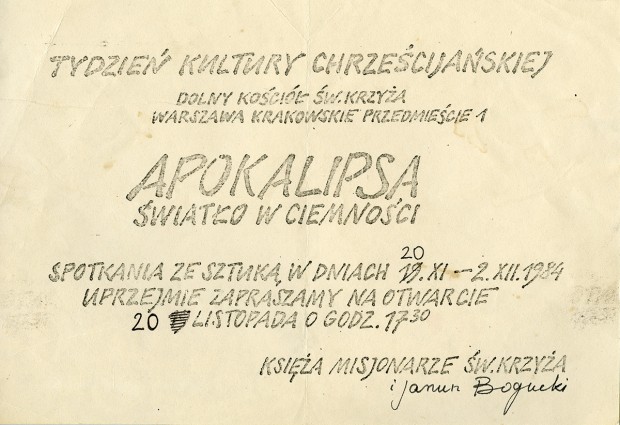 TYDZIEŃ KULTURY CHRZEŚCIJAŃSKIEJ
DOLNY KOŚCIÓŁ ŚW. KRZYŻA
WARSZAWA KRAKOWSKIE PRZEDMIEŚCIE 1
APOKALIPSA
ŚWIATŁO W CIEMNOŚCI
20
SPOTKANIA ZE SZTUKĄ W DNIACH 19. XI – 2. XII. 1984
UPRZEJMIE ZAPRASZAMY NA OTWARCIE
20 LISTOPADA O GODZ. 17³⁰
KSIĘŻA MISJONARZE ŚW. KRZYŻA
i Janusz Bogucki